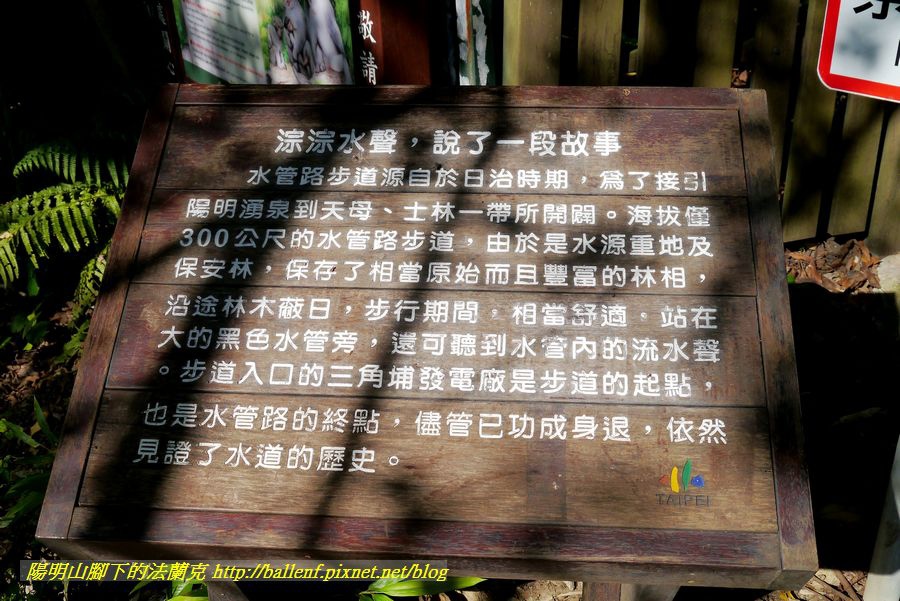 敬請
淙淙水聲，說了一段故事
水管路步道源自於日治時期，為了接引
陽明湧泉到天母、士林一帶所開闢。海拔僅
300公尺的水管路步道，由於是水源重地及
保安林，保存了相當原始而且豐富的林相，
沿途林木蔽日，步行期間，相當舒適。站在
大的黑色水管旁，還可聽到水管內的流水聲
。步道入口的三角埔發電廠是步道的起點，
也是水管路的終點，儘管已功成身退，依然
見證了水道的歷史。
TAIPEI
陽明山腳下的法蘭克 http://ballenf.pixnet.net/blog